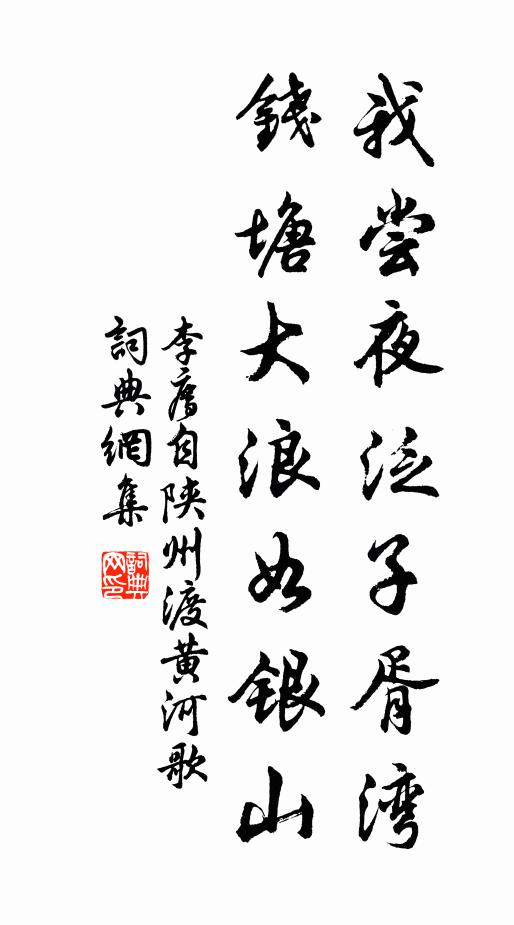 我尝夜泛子胥湾
錢塘大浪如銀山
李廌自陕州渡黄河歌
詞典網集
詞典网印